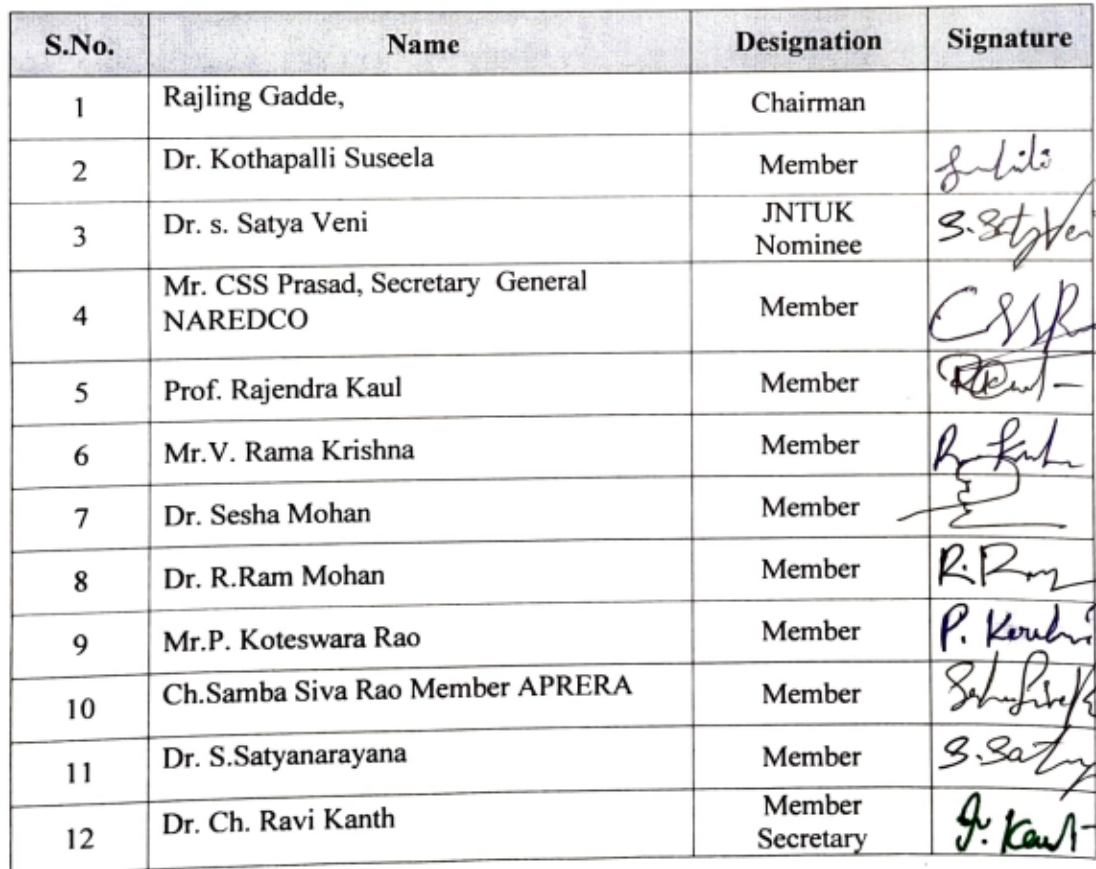 S.No. Name Designation Signature
1 Rajling Gadde, Chairman
2 Dr. Kothapalli Suseela Member
3 Dr. s. Satya Veni JNTUK Nominee S. Satya Veni
4 Mr. CSS Prasad, Secretary General NAREDCO Member
5 Prof. Rajendra Kaul Member
6 Mr.V. Rama Krishna Member
7 Dr. Sesha Mohan Member
8 Dr. R.Ram Mohan Member
9 Mr.P. Koteswara Rao Member
10 Ch.Samba Siva Rao Member APRERA Member
11 Dr. S.Satyanarayana Member
12 Dr. Ch. Ravi Kanth Member Secretary